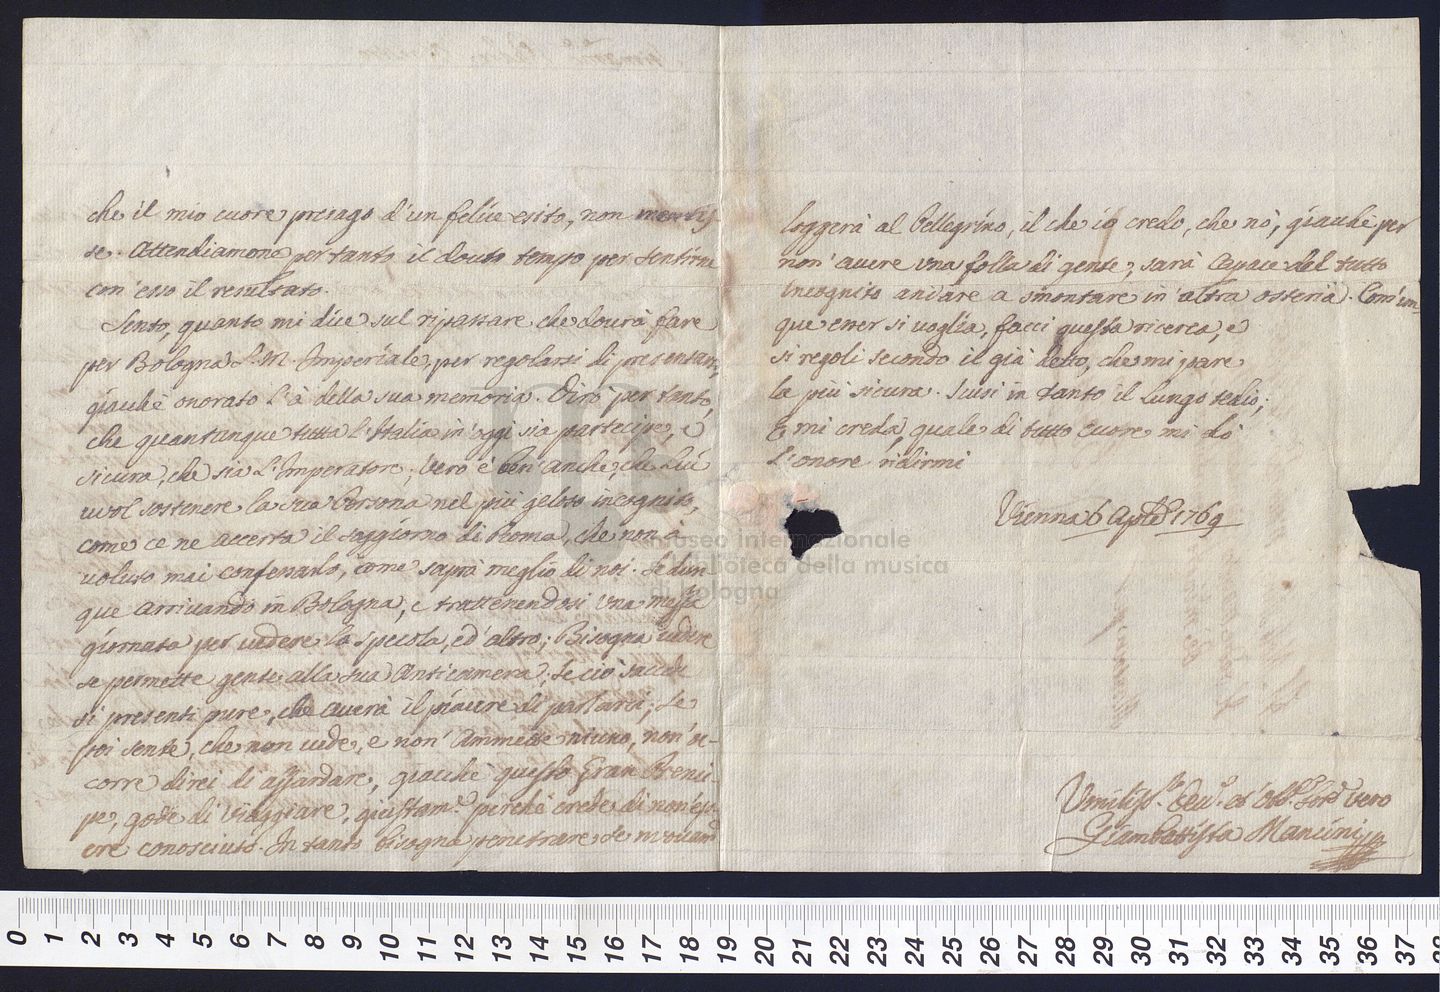 che il mio cuore presago d'un felice esito, non mentis-
se. Attendiamone per tanto il douto tempo per sentirne
con esso il resultato.
Sento, quanto mi dice sul ripassare che dourà fare
per Bologna S. M. Imperiale, per regolarsi di presentarsi,
giacchè onorato l'à della sua memoria. Dirò per tanto,
che quantunque tutta l'Italia in oggi sia partecipe, e
sicura, che sia l'Imperatore; vero è ben anche, che Lui
vuol sostenere la sua Persona nel più geloso incognito,
come ce ne accerta il soggiorno di Roma, che non à
voluto mai confessarlo, come saprà meglio di noi. Se dun-
que arrivando in Bologna, e trattenendosi una mezza
giornata per vedere la specola, ed altro; Bisogna vedere
se permette gente alla sua Anticamera; Se ciò succede
si presenti pure, che averà il piacere di parlarci; Se
poi sente, che non vede, e non ammette niuno, non oc-
corre direi di azzardare, giacchè questo Gran Prenci-
pe, gode di viaggiare, giustam.e perchè crede di non ess-
ere conosciuto. In tanto bisogna penetrare se
loggerà al Pellegrino, il che io credo, che nò, giacchè per
non avere una folla di gente, sarà capace del tutto
incognito andare a smontare in altra osteria. Comun-
que esser si voglia, facci questa ricerca, e
si regoli secondo il già detto, che mi pare
la più sicura. Scusi in tanto il lungo tedio;
E mi creda, quale di tutto cuore mi dò
l'onore ridirmi
Vienna 6 Aple 1769
Umiliss.o Dev.o ed Obb.o Ser.e vero
Giambattista Mancini
museo internazionale
e biblioteca della musica
di bologna
0 1 2 3 4 5 6 7 8 9 10 11 12 13 14 15 16 17 18 19 20 21 22 23 24 25 26 27 28 29 30 31 32 33 34 35 36 37 38